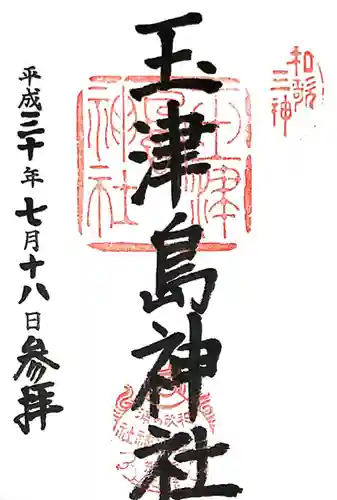 和歌三神
玉津島神社
平成三十年七月十八日参拝
玉津島神社